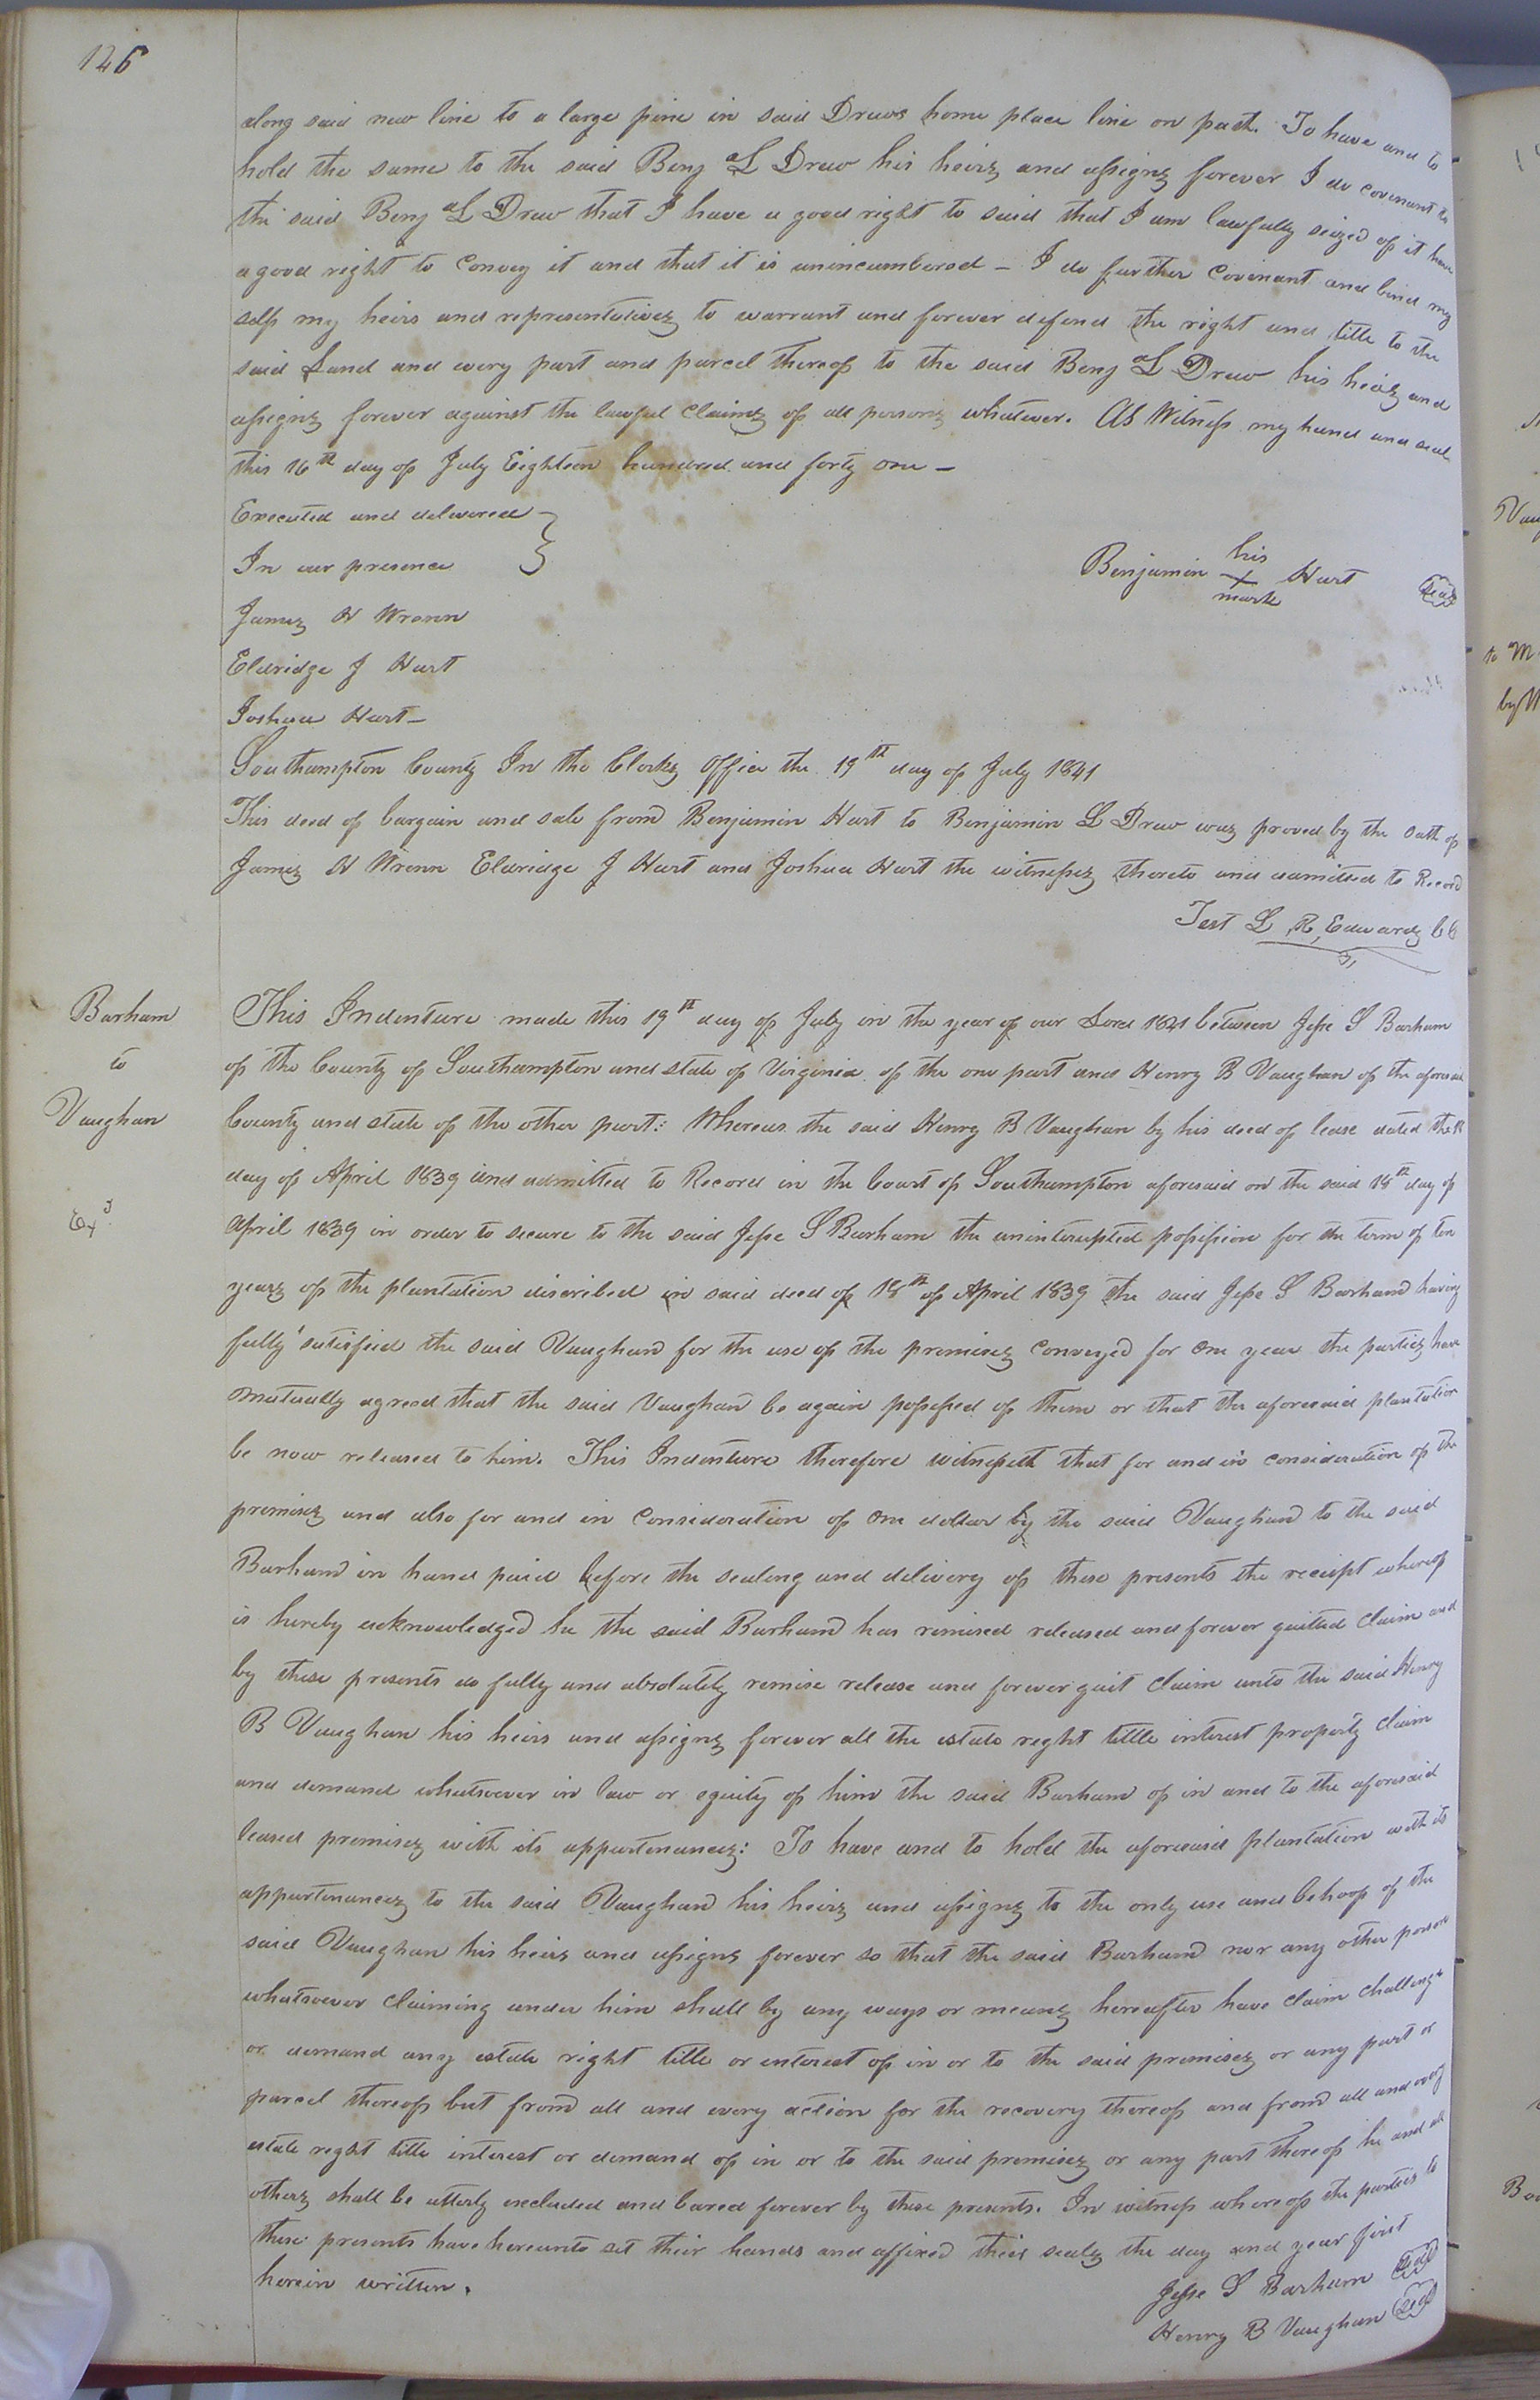 126
along said new line to a large pine in said Drews home place line on path. To have and to
hold the same to the said Benj L Drew his heirs and assigns forever I do covenant to
the said Benj L Drew that I have a good right to said that I am lawfully seized of it have
a good right to convey it and that it is unincumbered – I do further covenant and bind my
self my heirs and representatives to warrant and forever defend the right and title to the
said Land and every part and parcel thereof to the said Benj L Drew his heirs and
assigns forever against the lawful claims of all persons whatever. As Witness my hand and seal
this 16th day of July Eighteen hundred and forty one –
Executed and delivered
In our presence
his
Benjamin X Hart Seal
mark
James H Wrenn
Eldridge J Hart
Joshua Hart –
Southampton County In the Clerks Office the 19th day of July 1841
This deed of bargain and sale from Benjamin Hart to Benjamin L Drew was proved by the oath of
James H Wrenn Eldridge J Hart and Joshua Hart the witnesses thereto and admitted to Record
Test L R Edwards CC
Barham
to
Vaughan
Exd
This Indenture made this 19th day of July in the year of our Lord 1841 between Jesse S Barham
of the County of Southampton and state of Virginia of the one part and Henry B Vaughan of the aforesaid
County and state of the other part: Whereas the said Henry B Vaughan by his deed of lease dated the
day of April 1839 and admitted to Record in the Court of Southampton aforesaid on the said 18th day of
April 1839 in order to secure to the said Jesse S Barham the uninterupted possission for the term of ten
years of the plantation discribed in said deed of 18th of April 1839 the said Jesse S Barham having
fully satisfied the said Vaughan for the use of the premises conveyed for one year the parties have
mutually agreed that the said Vaughan be again possessed of them or that the aforesaid plantation
be now released to him. This Indenture therefore witnesseth that for and in consideration of the
premises and also for and in consideration of one dollar by the said Vaughan to the said
Barham in hand paid before the sealing and delivery of these presents the receipt whereof
is hereby acknowledged he the said Barham has remised released and forever quitted claim and
by these presents do fully and absolutely remise release and forever quit claim unto the said Henry
B Vaughan his heirs and assigns forever all the estate right tittle interest property claim
and demand whatsoever in law or equity of him the said Barham of in and to the aforesaid
leased premises with its appurtenances: To have and to hold the aforesaid plantation with its
appurtenances to the said Vaughan his heirs and assigns to the only use and behoof of the
said Vaughan his heirs and assigns forever so that the said Barham nor any other person
whatsoever claiming under him shall by any ways or means hereafter have claim challenge
or demand any estate right title or interest of in or to the said premises or any part or
parcel thereof but from all and every action for the recovery thereof and from all and every
estate right title interest or demand of in or to the said premises or any part thereof he and all
others shall be utterly excluded and bared forever by these presents. In witness whereof the parties to
these presents have hereunto set their hands and affixed their seals the day and year first
herein written.
Jesse S Barham Seal
Henry B Vaughan Seal